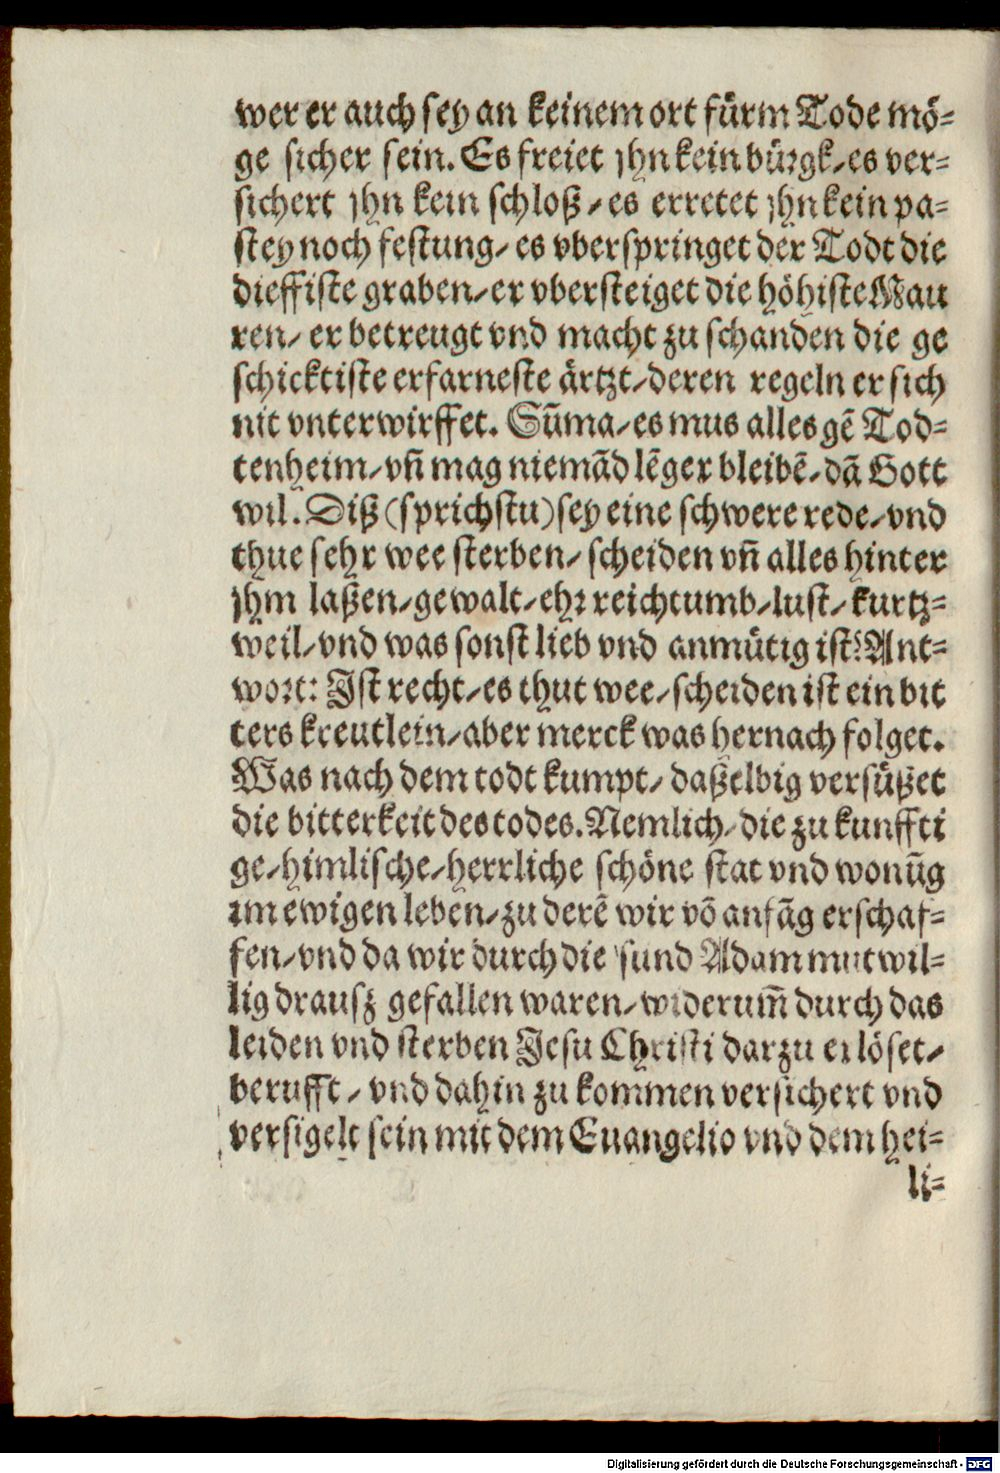 wer er auch sey an keinem ort fürm Tode mö-
ge sicher sein. Es freiet jhn kein bürgk / es ver-
sichert jhn kein schloß / es erretet jhn kein pa-
stey noch festung / es vberspringet der Todt die
dieffiste graben / er vbersteiget die höhiste Mau
ren / er betreugt vnd macht zu schanden die ge
schicktiste erfarneste ärtzt / deren regeln er sich
nit vnterwirffet. Sūma / es mus alles gē Tod-
tenheim / vn̄ mag niemād lēger bleibē / dā Gott
wil. Diß (sprichstu) sey eine schwere rede / vnd
thue sehr wee sterben / scheiden vn̄ alles hinter
jhm laßen / gewalt / ehr reichtumb / lust / kurtz-
weil / vnd was sonst lieb vnd anmütig ist? Ant-
wort: Ist recht / es thut wee / scheiden ist ein bit
ters kreutlein / aber merck was hernach folget.
Was nach dem todt kumpt / daßelbig versüßet
die bitterkeit des todes. Nemlich / die zu kunffti
ge / himlische / herrliche schöne stat vnd wonūg
im ewigen leben / zu derē wir vō anfāg erschaf-
fen / vnd da wir durch die sund Adam mutwil-
lig drausz gefallen waren / widerum̄ durch das
leiden vnd sterben Jesu Christi darzu erlöset /
berufft / vnd dahin zu kommen versichert vnd
versigelt sein mit dem Euangelio vnd dem hei-
li-
Digitalisierung gefördert durch die Deutsche Forschungsgemeinschaft - DFG